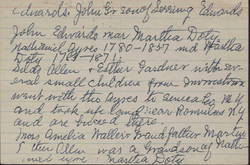 Edwards, John Gr son of Loring Edwards
John Edwards mar Martha Doty
Nathaniel Ayres 1780-1857 md Martha
Doty 1787-1871
Allen & Esther Gardner with sev
eral small children from
went with the Ayres to Seneca Co N.Y.
and took up land near Romulus N.Y.
and are buried there
Mrs Amelia Wallers Grandfather Martyn
Allen was a Grandson of Nath
Martha Doty